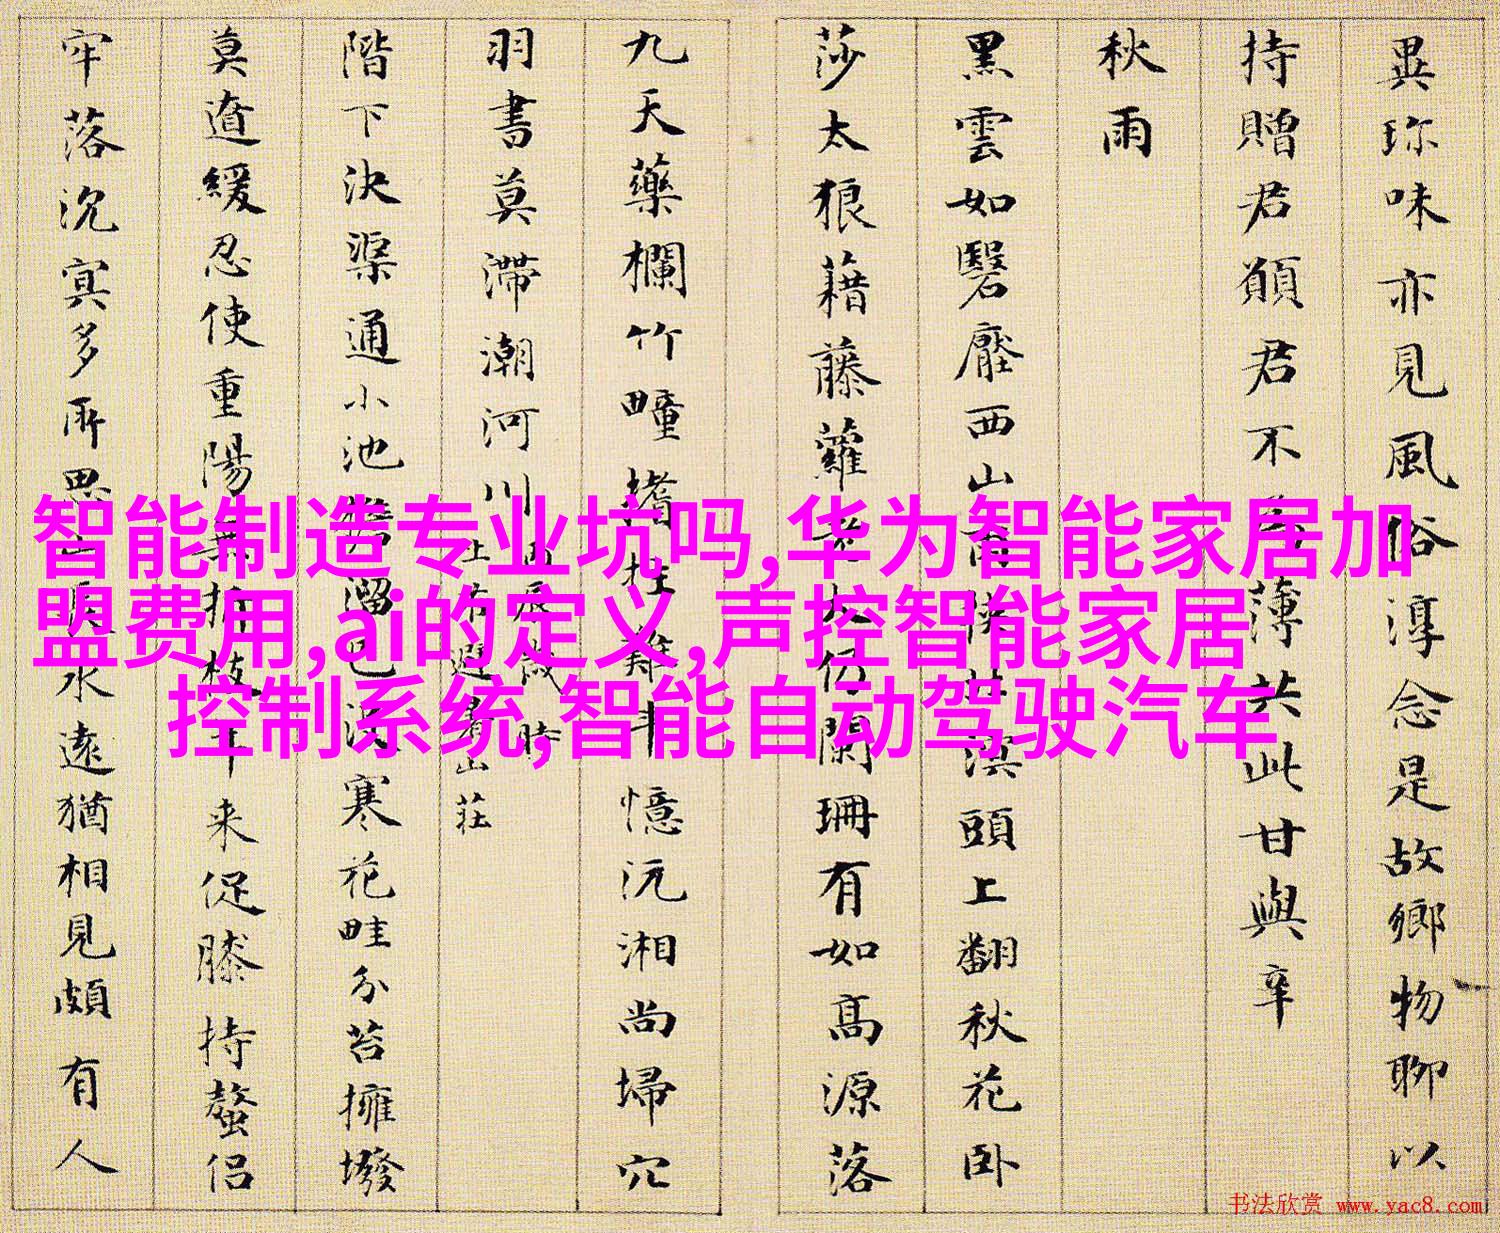 異珎味亦見風俗淳念是故鄉物聊以
持贈君願君不薄共此甘與辛
秋雨
黑雲如翳壓西山頭上翻秋花卧
莎太狼藉藤蘿闌珊有如高源落
九天藥欄竹疃憶沅湘尚埽穴
羽書莫滯潮河川
山莊
階下決渠通小池溜寒花畦分苔擁撥
莫遒緩忍使重陽来促膝持螯侣
牢落沉冥多所思水遠猶相見頗有人
智能制造专业坑吗,华为智能家居加
盟费用,ai的定义,声控智能家居
控制系统,智能自动驾驶汽车
书法欣赏 www.yac8.com